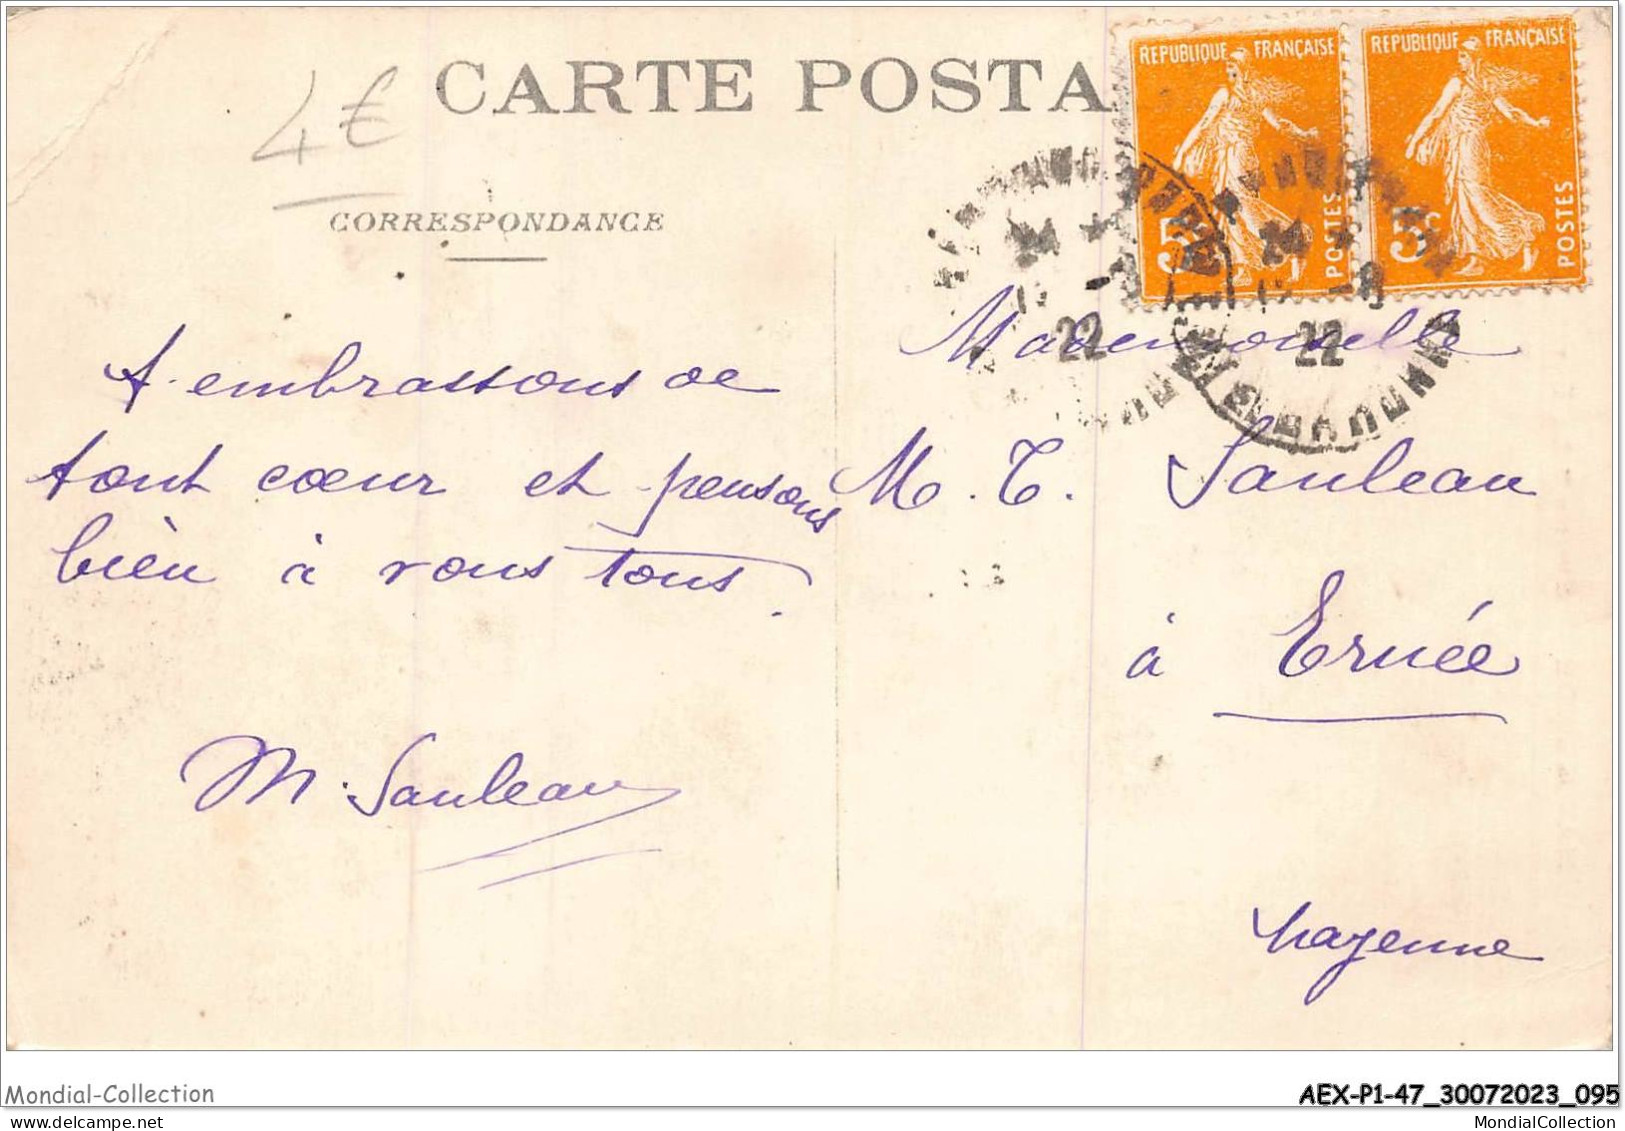 CARTE POSTA
4€
CORRESPONDANCE
REPUBLIQUE FRANÇAISE
5c
POSTES
REPUBLIQUE FRANÇAISE
5c
POSTES
22
22
t. embrassons de
tout cœur et pensons
bien à vous tous.
M. Sauleau
Mademoiselle
M. T. Sauleau
à Ernée
Mayenne
Mondial-Collection
AEX-P1-47_30072023_095
MondialCollection